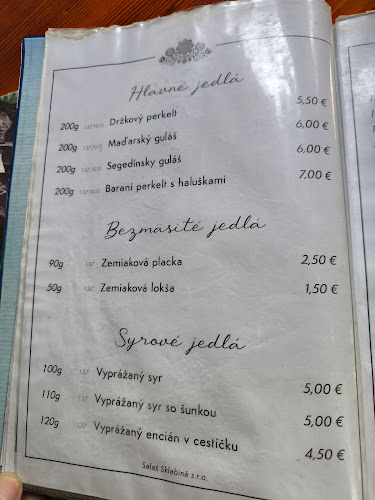 Hlavné jedlá
200g Držkový perkelt 5,50 €
200g Maďarský guláš 6,00 €
200g Segedínsky guláš 6,00 €
200g Baraní perkelt s haluškami 7,00 €
Bezmäsité jedlá
90g 1,3,7 Zemiaková placka 2,50 €
50g 1,3,7 Zemiaková lokša 1,50 €
Syrové jedlá
100g 1,3,7 Vyprážaný syr 5,00 €
110g 1,3,7 Vyprážaný syr so šunkou 5,00 €
120g 1,3,7 Vyprážaný encián v cestíčku 4,50 €
Salaš Sklabiná s.r.o.